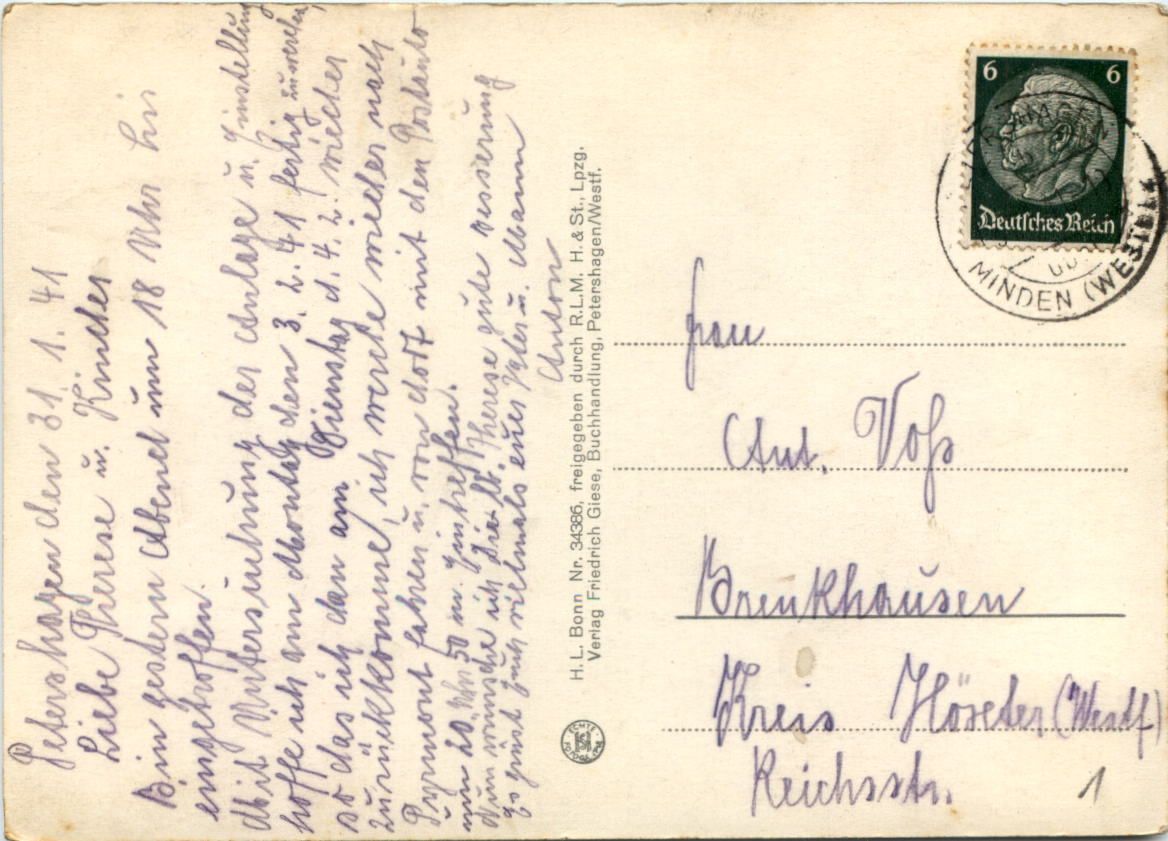 Petershagen den 31. 1. 41
Liebe Therese u. Kinder
Bin gestern Abend um 18 Uhr hir
eingetroffen.
Mit Untersuchung der Anlage u. Einstellung
hoffe ich am Montag den 3. 2. 41 fertig zu werden,
so das ich dan am Dienstag d. 4. 2. wieder
zurückkomme, ich werde wieder nach
Pyrmont fahren u. von dort mit den Postauto
um 20 Uhr 50 m. Eintreffen.
Nun wünsche ich Dir lb. Therese gute besserung
Es grüst Euch vielmals euer Vater u. Mann
Anton
H. L. Bonn Nr. 34386, freigegeben durch R.L.M. H. & St., Lpzg.
Verlag Friedrich Giese, Buchhandlung, Petershagen/Westf.
ECHTE
6 6
Deutsches Reich
PETERSHAGEN
MINDEN (WESTF)
Frau
Ant. Voß
Brenkhausen
Kreis Höxter (Westf)
Reichsstr.
1